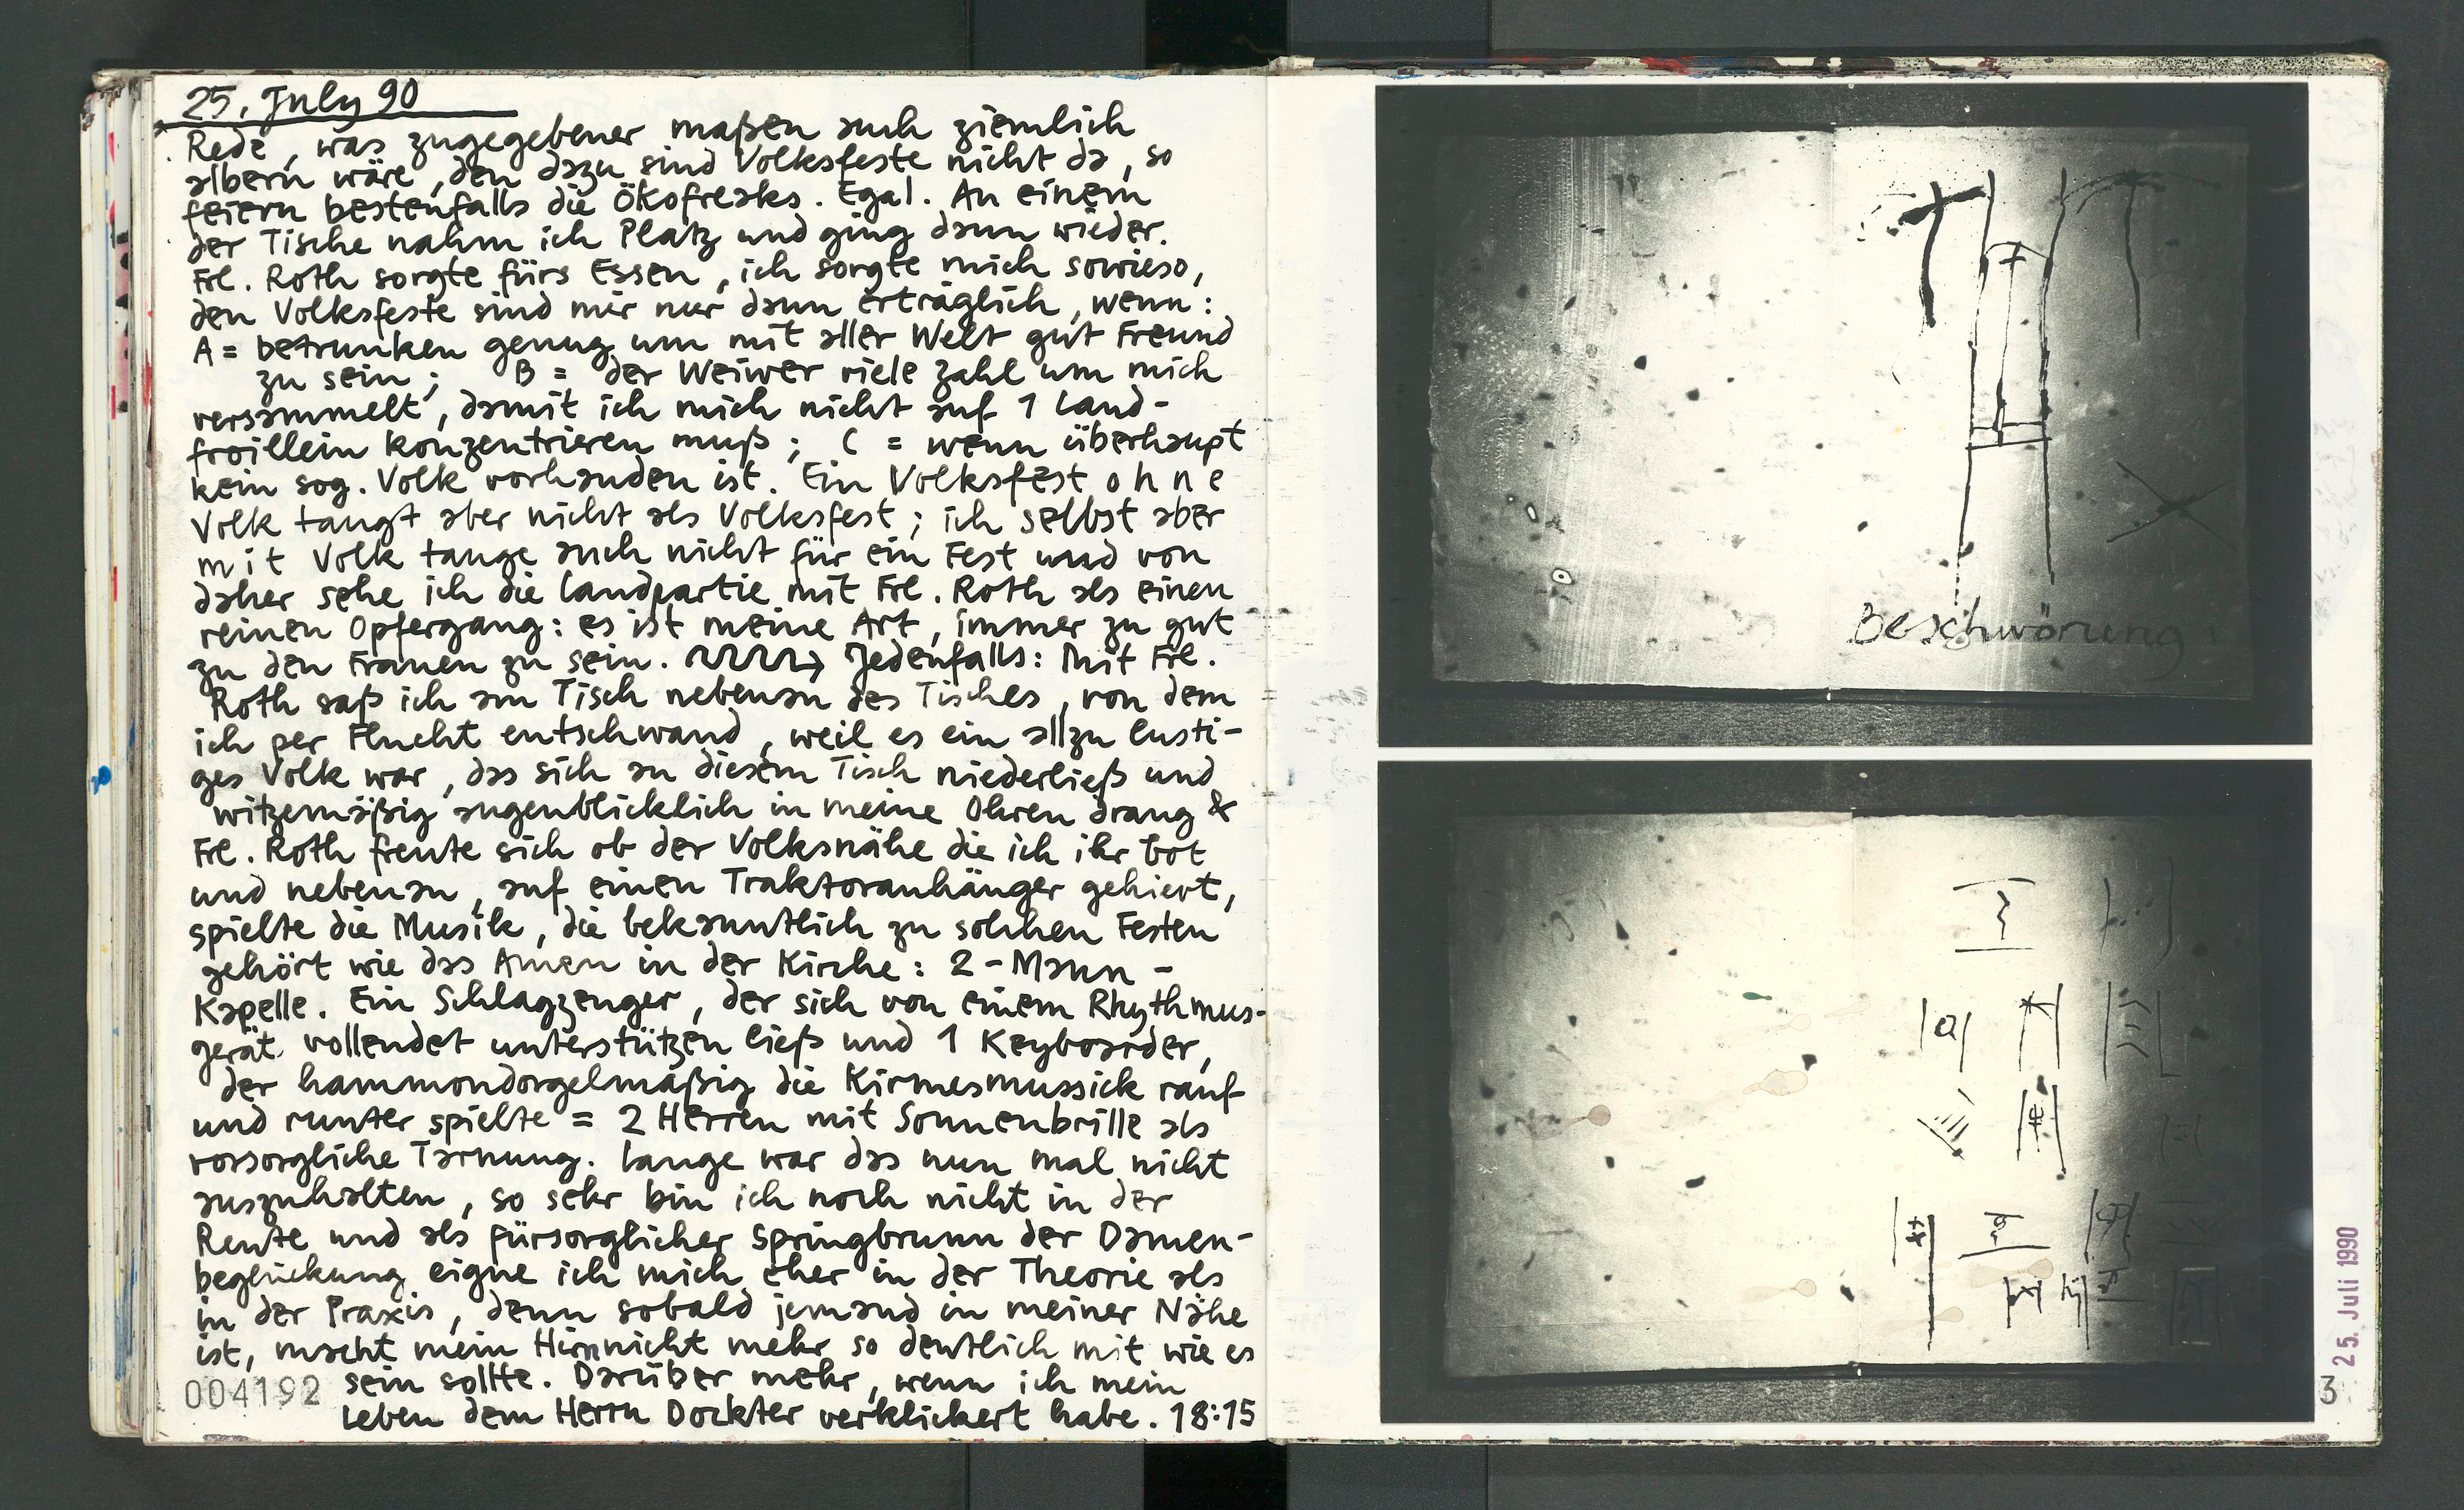 25. July 90
Rede, was zugegebener maßen auch ziemlich
albern wäre, den dazu sind Volksfeste nicht da, so
feiern bestenfalls die Ökofreaks. Egal. An einem
der Tische nahm ich Platz und ging dann wieder.
Frl. Roth sorgte fürs Essen, ich sorgte mich sowieso,
den Volksfeste sind mir nur dann erträglich, wenn:
A = betrunken genug um mit aller Welt gut Freund
zu sein; B = der Weiwer viele zahl um mich
versammelt, damit ich mich nicht auf 1 Land-
froillein konzentrieren muß; C = wenn überhaupt
kein sog. Volk vorhanden ist. Ein Volksfest ohne
Volk taugt aber nicht als Volksfest; ich selbst aber
mit Volk tauge auch nicht für ein Fest und von
daher sehe ich die Landpartie mit Frl. Roth als einen
reinen Opfergang: es ist meine Art, immer zu gut
zu den Frauen zu sein. Jedenfalls: Mit Frl.
Roth saß ich am Tisch nebenan des Tisches, von dem
ich per Flucht entschwand, weil es ein allzu lusti-
ges Volk war, das sich an diesem Tisch niederließ und
witzemäßig augenblicklich in meine Ohren drang &
Frl. Roth freute sich ob der Volksnähe die ich ihr bot
und nebenan, auf einen Traktoranhänger gehievt,
spielte die Musik, die bekanntlich zu solchen Festen
gehört wie das Amen in der Kirche: 2-Mann-
Kapelle. Ein Schlagzeuger, der sich von einem Rhythmus-
gerät vollendet unterstützen ließ und 1 Keyboarder,
der hammondorgelmäßig die Kirmesmussick rauf
und runter spielte = 2 Herren mit Sonnenbrille als
vorsorgliche Tarnung. Lange war das nun mal nicht
auszuhalten, so sehr bin ich noch nicht in der
Rente und als fürsorglicher Springbrunn der Damen-
beglückung eigne ich mich eher in der Theorie als
in der Praxis, denn sobald jemand in meiner Nähe
ist, macht mein Hirn nicht mehr so deutlich mit wie es
sein sollte. Darüber mehr, wenn ich mein
Leben dem Herrn Dockter verklickert habe. 18:15
004192
Beschwörung
25. Juli 1990
3